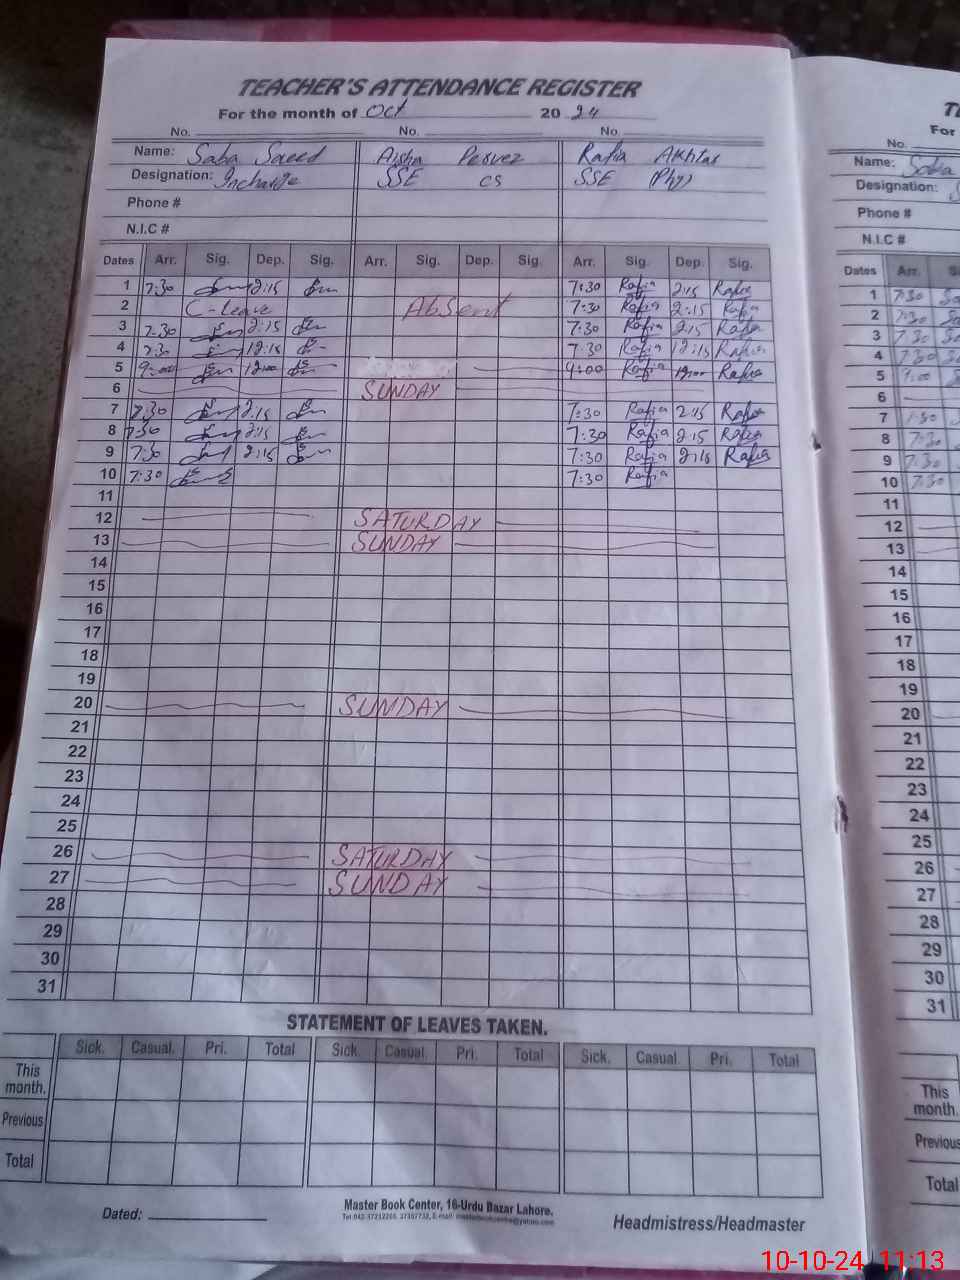 TEACHER'S ATTENDANCE REGISTER
For the month of Oct 20 24
No. No. No.
Name: Saba Saeed Aisha Pervez Rafia Akhtar
Designation: Incharge SSE CS SSE (Phy)
Phone #
N.I.C #
Dates Arr. Sig. Dep. Sig. Arr. Sig. Dep. Sig. Arr. Sig. Dep. Sig.
1 7:30 2:15 7:30 Rafia 2:15 Rafia
2 C-leave Absent 7:30 Rafia 2:15 Rafia
3 7:30 2:15 7:30 Rafia 2:15 Rafia
4 7:30 12:15 7:30 Rafia 12:15 Rafia
5 9:00 12:00 9:00 Rafia 12:00 Rafia
6 SUNDAY
7 7:30 2:15 7:30 Rafia 2:15 Rafia
8 7:30 2:15 7:30 Rafia 2:15 Rafia
9 7:30 2:15 7:30 Rafia 2:15 Rafia
10 7:30 7:30 Rafia
11
12 SATURDAY
13 SUNDAY
14
15
16
17
18
19
20 SUNDAY
21
22
23
24
25
26 SATURDAY
27 SUNDAY
28
29
30
31
STATEMENT OF LEAVES TAKEN.
Sick. Casual. Pri. Total Sick. Casual. Pri. Total Sick. Casual. Pri. Total
This month.
Previous
Total
Dated:
Master Book Center, 16-Urdu Bazar Lahore.
Headmistress/Headmaster
For
No.
Name: Saba
Designation:
Phone #
N.I.C #
Dates Arr.
1 7:30
2 7:30
3 7:30
4 7:30
5 9:00
6
7 7:30
8 7:30
9 7:30
10 7:30
11
12
13
14
15
16
17
18
19
20
21
22
23
24
25
26
27
28
29
30
31
This month.
Previous
Total
10-10-24 11:13